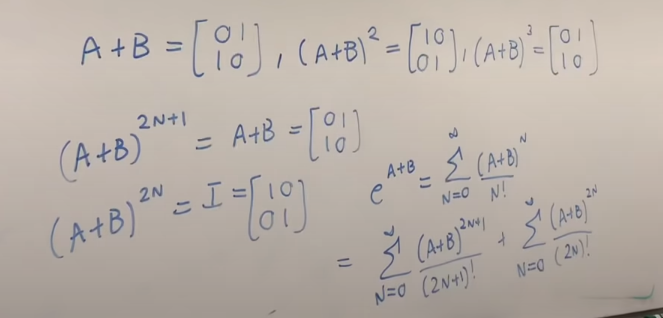 A+B = [0 1 1 0], (A+B)^2 = [1 0 0 1], (A+B)^3 = [0 1 1 0]
(A+B)^{2N+1} = A+B = [0 1 1 0]
(A+B)^{2N} = I = [1 0 0 1]
e^{A+B} = ∑_{N=0}^{∞} (A+B)^N / N!
= ∑_{N=0}^{∞} (A+B)^{2N+1} / (2N+1)! + ∑_{N=0}^{∞} (A+B)^{2N} / (2N)!